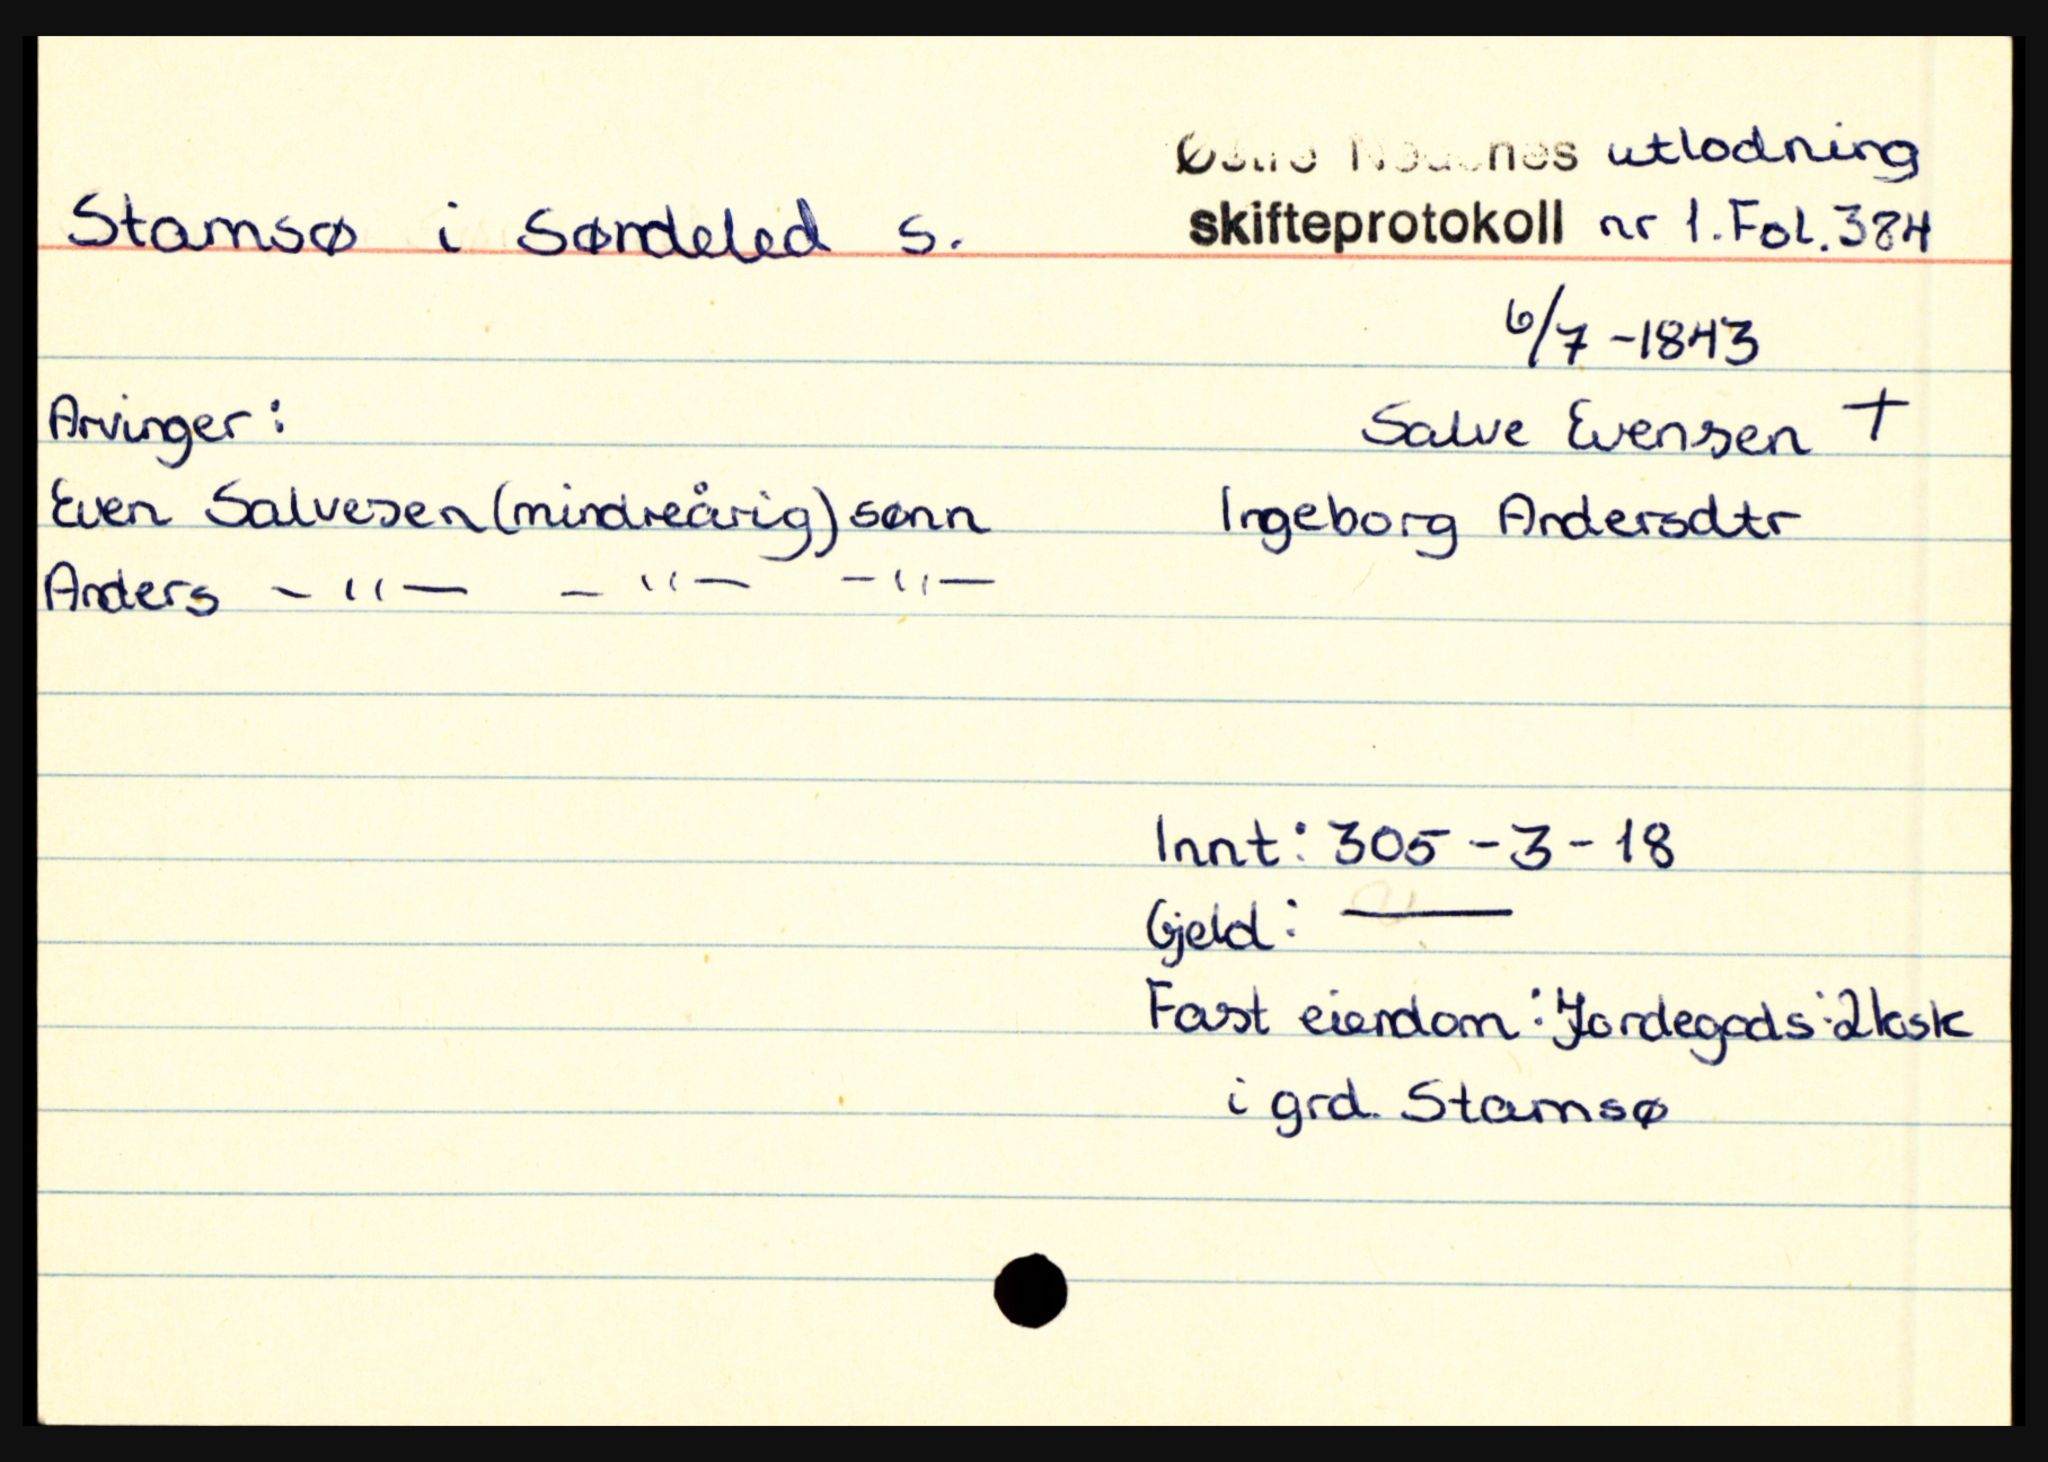 Østre Nedenes utlodning
Stamsø i Søndeled s. skifteprotokoll nr 1. Fol. 384
6/7 -1843
Arvinger: Salve Evensen +
Even Salvesen (mindreårig) sønn Ingeborg Andersdtr
Anders - " - - " - - " -
Innt: 305 - 3 - 18
Gjeld: —
Fast eiendom: Jordegods:
i grd. Stamsø